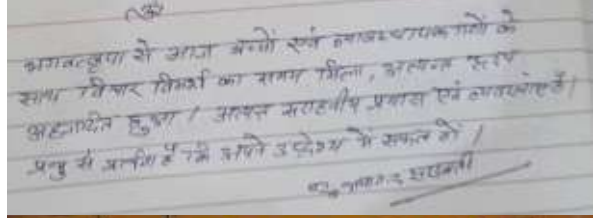 ॐ
भगवत्कृपा से आज बच्चों एवं व्यवस्थापक गणों के
साथ विचार विमर्श का समय मिला, अत्यन्त हृदय
आह्लादित हुआ। अत्यंत सराहनीय प्रयास एवं व्यवस्थाएं हैं।
प्रभु से प्रार्थना है कि अपने उद्देश्य में सफल हों।
सरस्वती